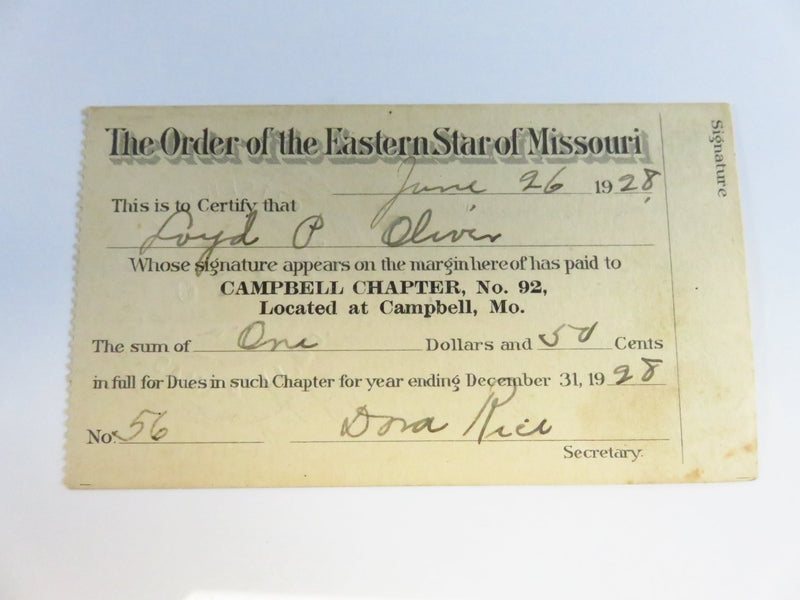 The Order of the Eastern Star of Missouri
June 26 1928
This is to Certify that
Loyd P Oliver
Whose signature appears on the margin hereof has paid to
CAMPBELL CHAPTER, No. 92,
Located at Campbell, Mo.
The sum of One Dollars and 50 Cents
in full for Dues in such Chapter for year ending December 31, 1928
No. 56 Dora Rice
Secretary.
Signature